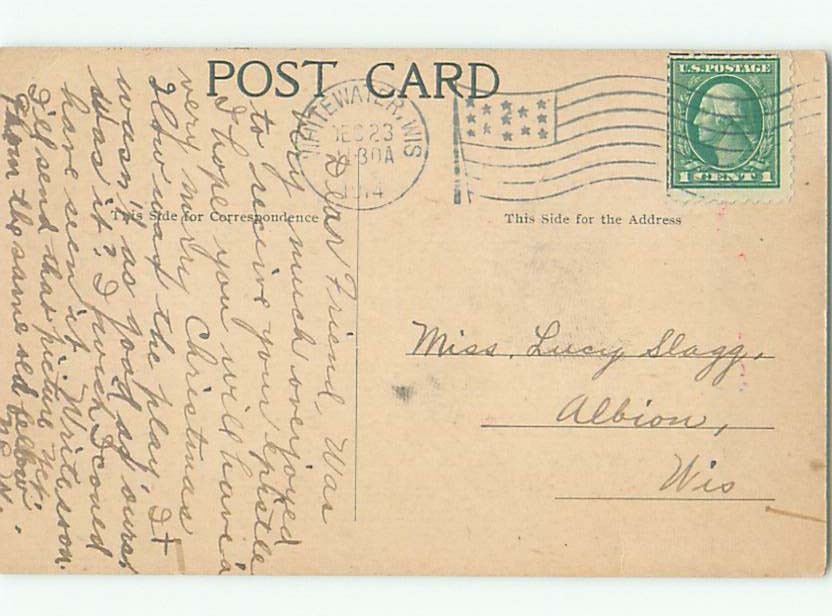 POST CARD
WHITEWATER, WIS
DEC 23
11-30A
1914
U.S. POSTAGE
1 CENT 1
This Side for Correspondence
This Side for the Address
Miss. Lucy Slagg.
Albion,
Wis
Dear Friend, Was
very much overjoyed
to receive your epistle
I hope you will have a
very merry Christmas
How was the play. It
wasn't as good as ours,
was it? I wish I could
have seen it. Write soon.
I'll send that picture yet.
From the same old fellow